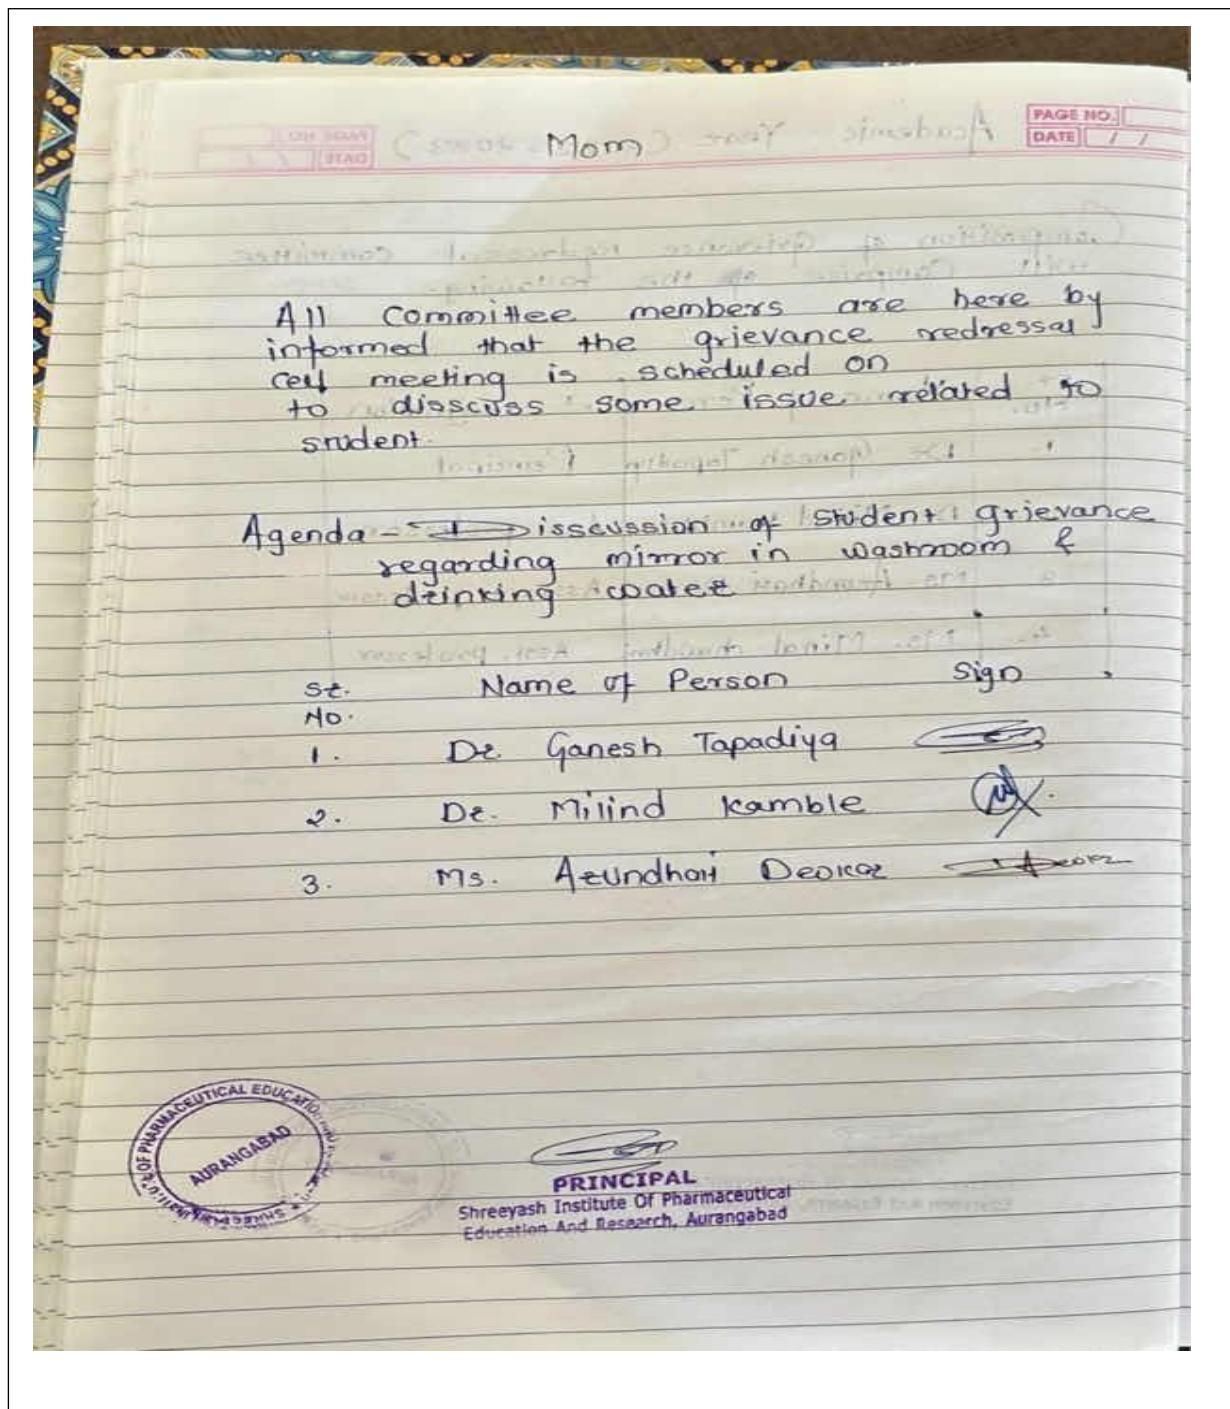 PAGE NO.
DATE / /
Mom
All Committee members are here by
informed that the grievance redressal
cell meeting is scheduled on
to disscuss some issue related to
student.
Agenda - Disscussion of student grievance
regarding mirror in washroom &
drinking water
Sr. Name of Person Sign
No.
1. Dr. Ganesh Tapadiya
2. Dr. Milind Kamble
3. Ms. Arundhati Deokar
OF PHARMACEUTICAL EDUCATION
AURANGABAD
PRINCIPAL
Shreeyash Institute Of Pharmaceutical
Education And Research, Aurangabad